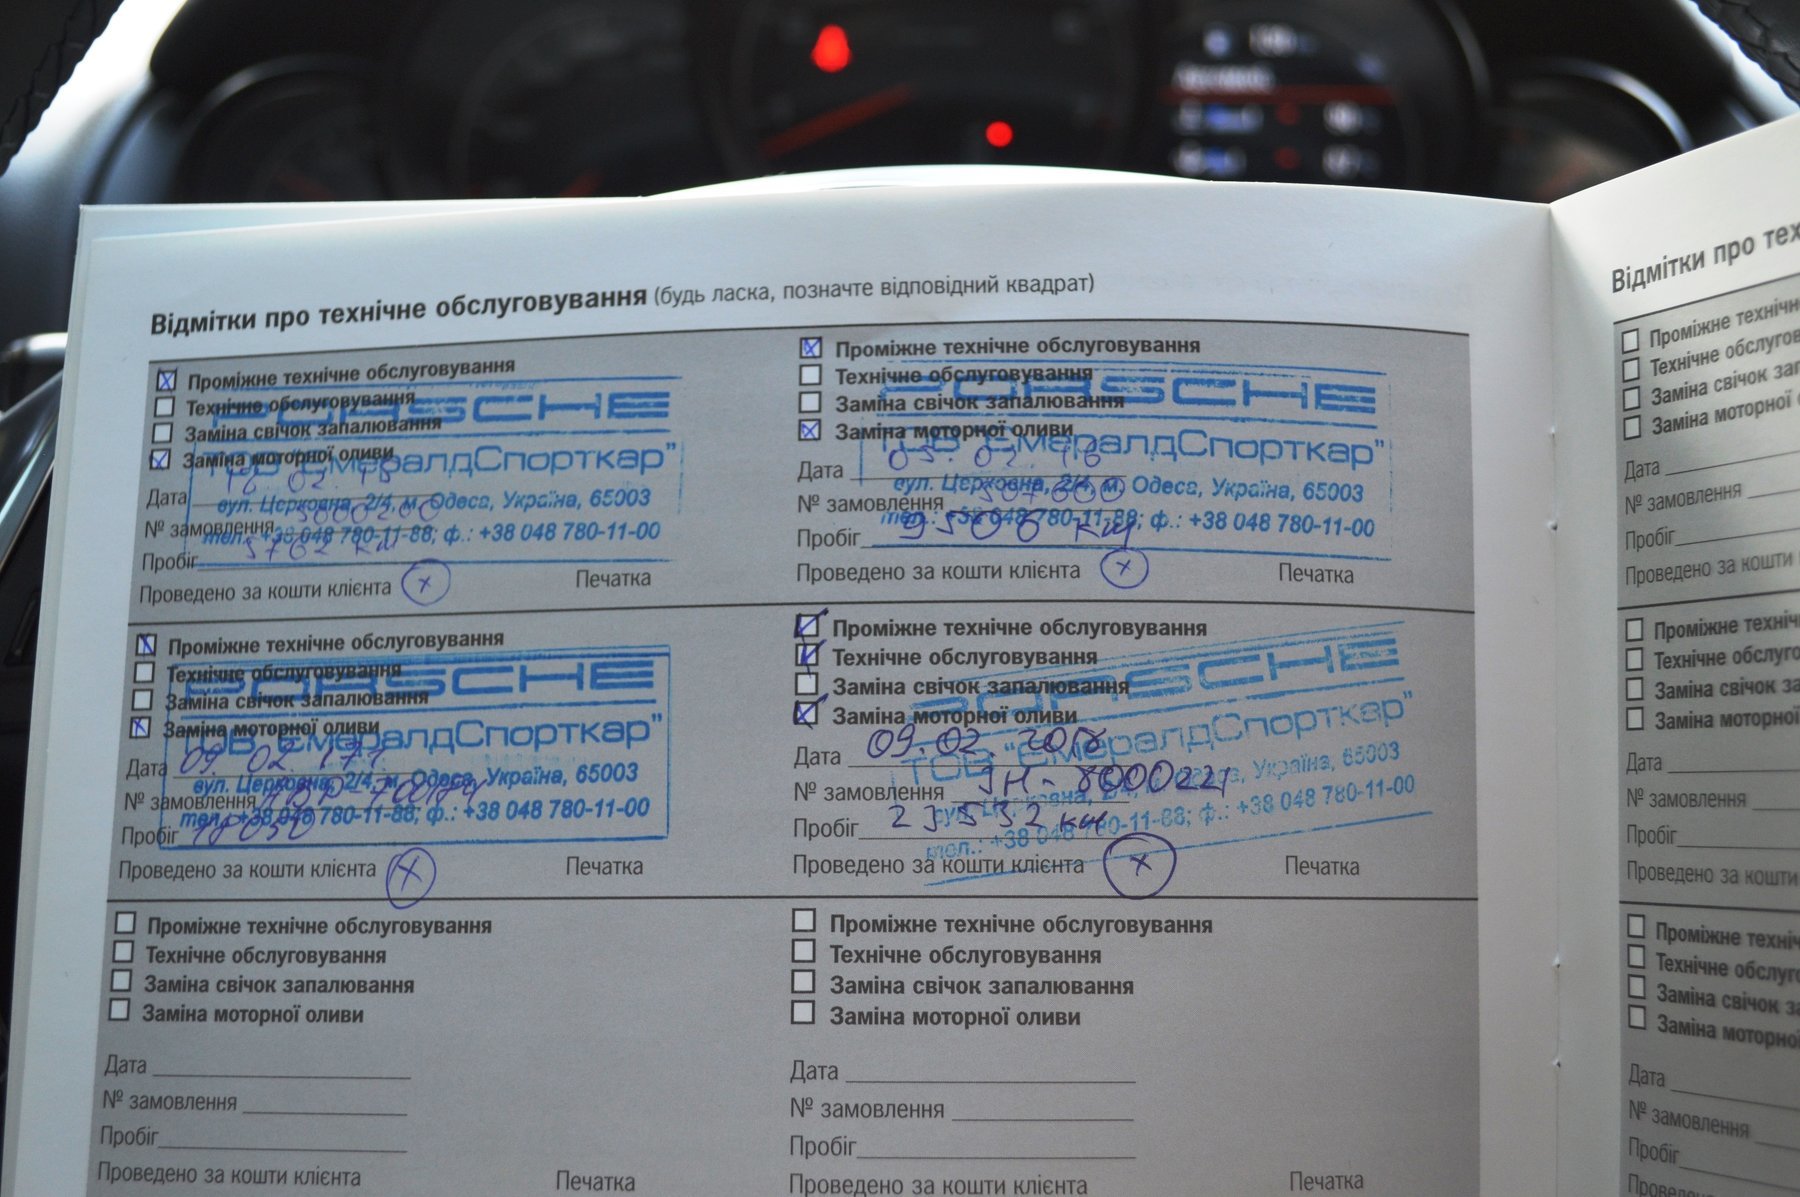 Відмітки про технічне обслуговування (будь ласка, позначте відповідний квадрат)
Проміжне технічне обслуговування
Технічне обслуговування
Заміна свічок запалювання
Заміна моторної оливи
PORSCHE
ТОВ "ЕмералдСпорткар"
вул. Церковна, 2/4, м. Одеса, Україна, 65003
тел.: +38 048 780-11-88; ф.: +38 048 780-11-00
Дата
№ замовлення
Пробіг 5762 км
Проведено за кошти клієнта X
Печатка
Проміжне технічне обслуговування
Технічне обслуговування
Заміна свічок запалювання
Заміна моторної оливи
PORSCHE
ТОВ "ЕмералдСпорткар"
вул. Церковна, 2/4, м. Одеса, Україна, 65003
тел.: +38 048 780-11-88; ф.: +38 048 780-11-00
Дата 05.02.16
№ замовлення
Пробіг 9506 км
Проведено за кошти клієнта X
Печатка
Проміжне технічне обслуговування
Технічне обслуговування
Заміна свічок запалювання
Заміна моторної оливи
PORSCHE
ТОВ "ЕмералдСпорткар"
вул. Церковна, 2/4, м. Одеса, Україна, 65003
тел.: +38 048 780-11-88; ф.: +38 048 780-11-00
Дата 09 02 17
№ замовлення
Пробіг 18050
Проведено за кошти клієнта X
Печатка
Проміжне технічне обслуговування
Технічне обслуговування
Заміна свічок запалювання
Заміна моторної оливи
PORSCHE
ТОВ "ЕмералдСпорткар"
вул. Церковна, 2/4, м. Одеса, Україна, 65003
тел.: +38 048 780-11-88; ф.: +38 048 780-11-00
Дата 09.02.2018
№ замовлення
Пробіг 23532 км
Проведено за кошти клієнта X
Печатка
Проміжне технічне обслуговування
Технічне обслуговування
Заміна свічок запалювання
Заміна моторної оливи
Дата
№ замовлення
Пробіг
Проведено за кошти клієнта
Печатка
Проміжне технічне обслуговування
Технічне обслуговування
Заміна свічок запалювання
Заміна моторної оливи
Дата
№ замовлення
Пробіг
Проведено за кошти клієнта
Печатка
Відмітки про тех
Проміжне технічн
Технічне обслугов
Заміна свічок зап
Заміна моторної о
Дата
№ замовлення
Пробіг
Проведено за кошти
Проміжне техніч
Технічне обслуго
Заміна свічок за
Заміна моторної
Дата
№ замовлення
Пробіг
Проведено за кошти
Проміжне техніч
Технічне обслуго
Заміна свічок за
Заміна моторно
Дата
№ замовлення
Пробіг
Проведено